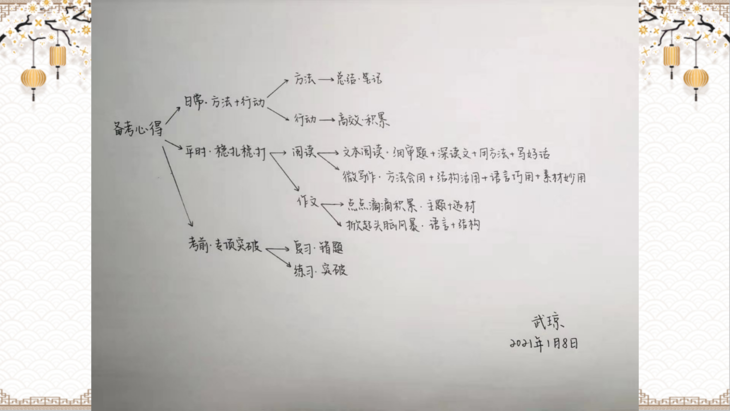 方法→总结·笔记
日常·方法+行动
行动→高效·积累
备考心得
平时·稳扎稳打→阅读→文本阅读·细审题+深读文+用方法+写好话
微写作·方法会用+结构活用+语言巧用+素材妙用
作文→点点滴滴积累·主题+选材
掀起头脑风暴·语言+结构
考前·专项突破→复习·错题
练习·突破
武琼
2021年1月8日